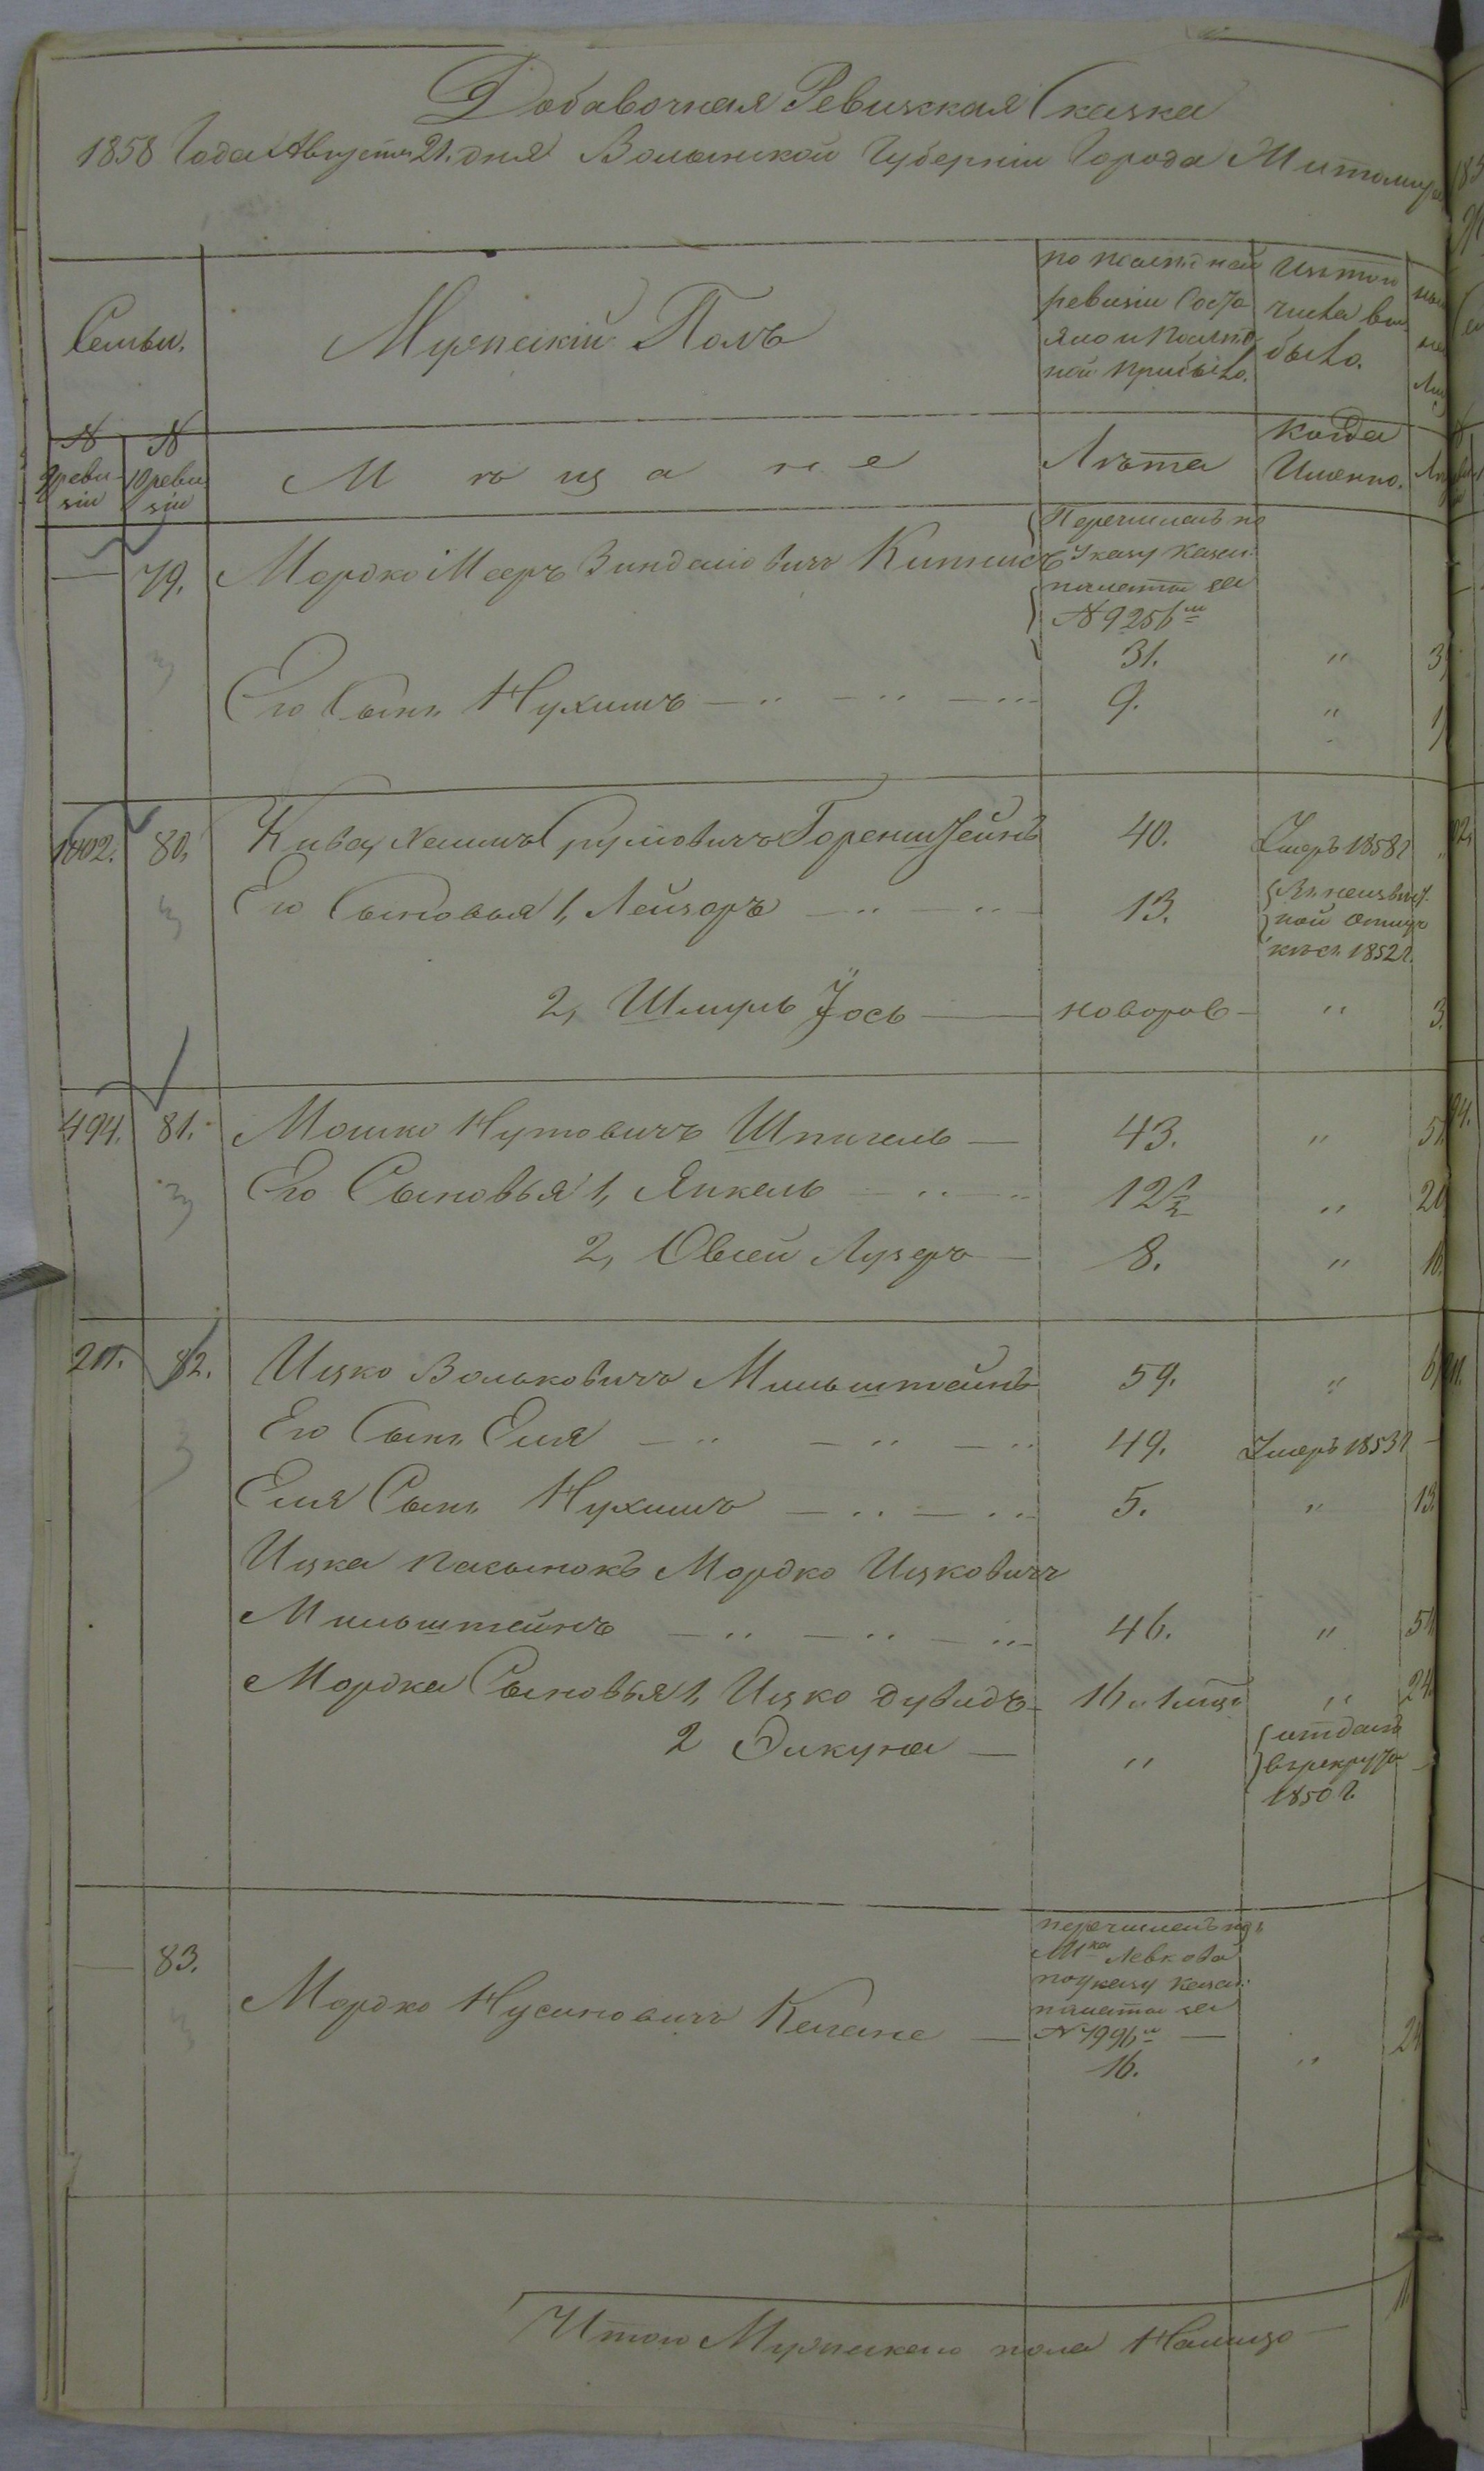 Добавочная Ревизская Сказка
1858 Года Августа 21. дня Волынской Губерніи Города Житомира
Семьи.
Мужескій Полъ
по послѣдней
ревизіи Состо
яло и послѣд
ней прибыло.
Изъ того
числа вы
было.
№
9 реви
зіи
№
10 реви
зіи
Мѣщане
Лѣта
Когда
Именно.
79.
Мордко Мееръ
Перечисленъ по
Указу Казен:
палаты за
№ 9256 м
31.
"
Его Сынъ Нухимъ
9.
"
1402.
80.
Сруловичъ Горенштейнъ
40.
Умеръ 1858 г
Его Сыновья 1, Лейзеръ
13.
Въ неизвѣст
ной отлуч
кѣ съ 1852 г.
2, Шмуль Іось
новорож
"
3.
494.
81.
Мошко Нутовичъ Шпигель
43.
"
51.
Его Сыновья 1, Янкель
12 ½
"
20
2, Овсей Лузеръ
8.
"
16.
211.
82.
Ицко Вольковичъ Мильштейнъ
59.
"
Его Сынъ Еля
49.
Умеръ 1853 г
Еля Сынъ Нухимъ
5.
"
13.
Ицка пасынокъ Мордко Ицковичъ
Мильштейнъ
46.
"
54
Мордка Сыновья 1, Ицко Дувидъ
16 и 1 мѣс
"
24.
2
"
отданъ
в рекруты
1850 г.
83.
Мордко Нусиновичъ
перечисленъ изъ
М ка Левкова
по указу Казен:
палаты за
№ 7996 м
16.
"
24
Итого Мужескаго пола Налицо